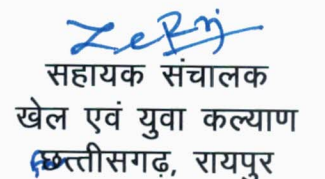 सहायक संचालक
खेल एवं युवा कल्याण
छत्तीसगढ़, रायपुर